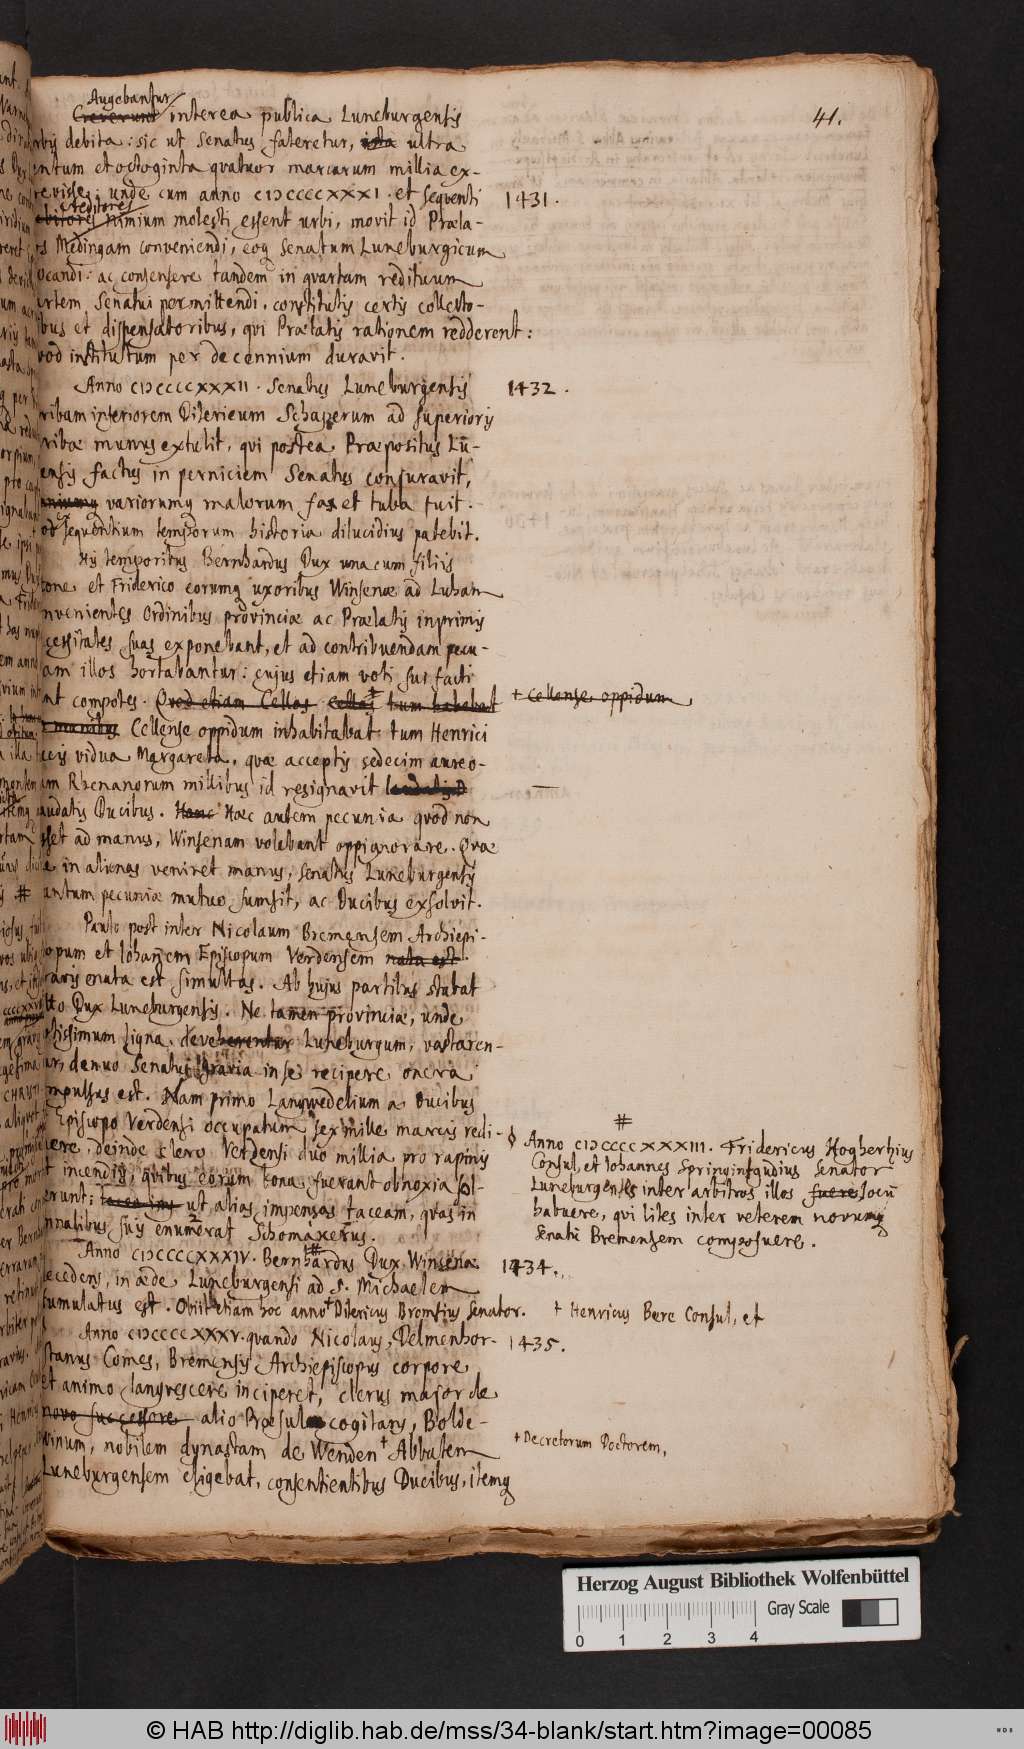 41.
Augebantur
Creverunt interea publica Luneburgensis
debita: sic ut Senatus fateretur, ista ultra
entum et octoginta quatuor marcarum millia ex-
revisse; unde cum anno CIƆCCCCXXXI. et sequenti 1431.
creditores
ebitores nimium molesti essent urbi, movit id Præla-
Medingam conveniendi, eoq Senatum Luneburgicum
ocandi: ac consensere tandem in quartam redituum
artem Senatui permittendi. constitutis certis collecto-
ibus et dispensatoribus, qui Prælatis rationem redderent:
vod institutum per decennium duravit.
Anno CIƆCCCCXXXII. Senatus Luneburgensis 1432.
ribam inferiorem Ditericum Schaperum ad superioris
ribæ munus extulit, qui postea Præpositus Lu-
ensis factus in perniciem Senatus conjuravit,
variorumq malorum fax et tuba fuit.
sequentium temporum historia dilucidius patebit.
His temporibus Bernhardus Dux una cum filiis
tone et Friderico eorumq uxoribus Winsenæ ad Luham
nvenientes Ordinibus provinciæ ac Prælatis inprimis
cessitates suas exponebant, et ad contribuendam pecu-
am illos hortabantur: cujus etiam voti sui facti
nt compotes. Quod etiam Cellas Cellas + tum habebat + Cellense oppidum
Cellense oppidum inhabitabat tum Henrici
ucis vidua Margareta, quæ acceptis sedecim aureo-
um Rhenanorum millibus id resignavit laudatis D
audatis Ducibus. Hanc Hæc autem pecunia quod non
sset ad manus, Winsenam volebant oppignorare. Quæ
in alienas veniret manus, Senatus Luneburgensis
antum pecuniæ mutuo sumsit, ac Ducibus exsolvit.
Paulo post inter Nicolaum Bremensem Archiepi-
opum et Iohannem Episcopum Verdensem nata est
ravis enata est simultas. Ab hujus partibus stabat
tto Dux Luneburgensis. Ne tamen provinciæ, unde
tissimum ligna deveherentur Luneburgum, vastaren-
ur, denuo Senatus gravia in se recipere onera
mpulsus est. Nam primo Langwedelium a Ducibus
Episcopo Verdensi occupatum sex mille marcis redi-
mere, deinde clero Verdensi duo millia pro rapinis
t incendiis, quibus eorum bona fuerant obnoxia sol-
erunt; ut alias impensas taceam, quas in
nnalibus suis enumerat Schomakerus.
#
Anno CIƆCCCCXXXIII. Fridericus Hogherhius
Consul, et Iohannes Springintgudius Senator
Luneburgenses inter arbitros illos fuere locū
habuere, qui lites inter veterem novumq
Senatū Bremensem composuere.
Anno CIƆCCCCXXXIV. Bernhardus Dux Winsenæ 1434.
decedens, in æde Luneburgensi ad S. Michaelem
tumulatus est. Obiit etiam hoc anno + Ditericus Bromsius Senator. + Henricus Bere Consul, et
Anno CIƆCCCCXXXV. quando Nicolaus, Delmenhor- 1435.
stanus Comes, Bremensis Archiepiscopus corpore
et animo languescere inciperet, clerus major de
novo successore alio Præsule cogitans, Bolde-
winum, nobilem dynastam de Wenden + Abbatem + Decretorum Doctorem,
Luneburgensem eligebat, consentientibus Ducibus, itemq
Herzog August Bibliothek Wolfenbüttel
Gray Scale
0 1 2 3 4
© HAB http://diglib.hab.de/mss/34-blank/start.htm?image=00085